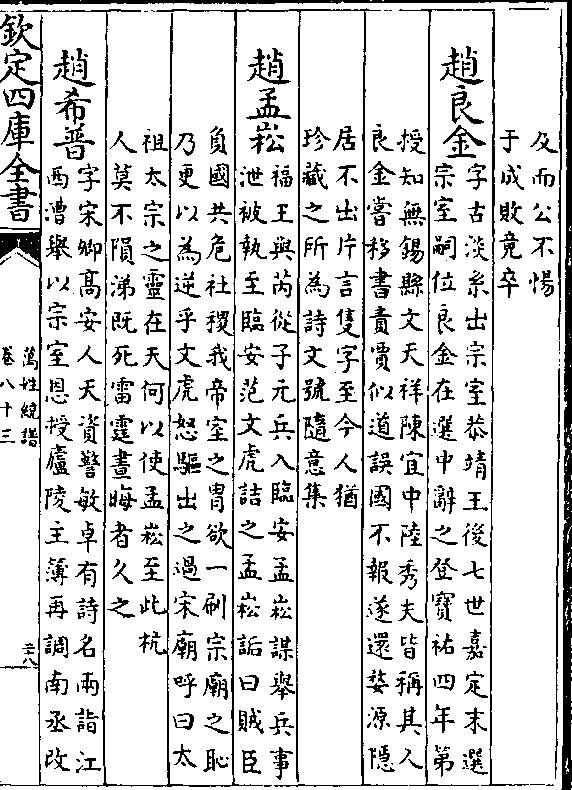 及而公不惕
于成敗竟卒
趙良金
字古淡系出宗室恭靖王後七世嘉定末選
宗室嗣位良金在選中辭之登寶祐四年第
授知無錫縣文天祥陳宜中陸秀夫皆稱其人
良金嘗移書責賈似道誤國不報遂還婺源隱
居不出片言隻字至今人猶
珍藏之所為詩文號隨意集
趙孟崧
福王與芮從子元兵入臨安孟崧謀舉兵事
泄被執至臨安范文虎詰之孟崧詬曰賊臣
負國共危社稷我帝室之胄欲一刷宗廟之恥
乃更以為逆乎文虎怒驅出之過宋廟呼曰太
祖太宗之靈在天何以使孟崧至此杭
人莫不隕涕既死雷霆晝晦者久之
趙希普
字宋卿髙安人天資警敏卓有詩名兩詣江
西漕舉以宗室恩授廬陵主簿再調南丞改
欽定四庫全書
萬姓統譜
卷八十三
二八